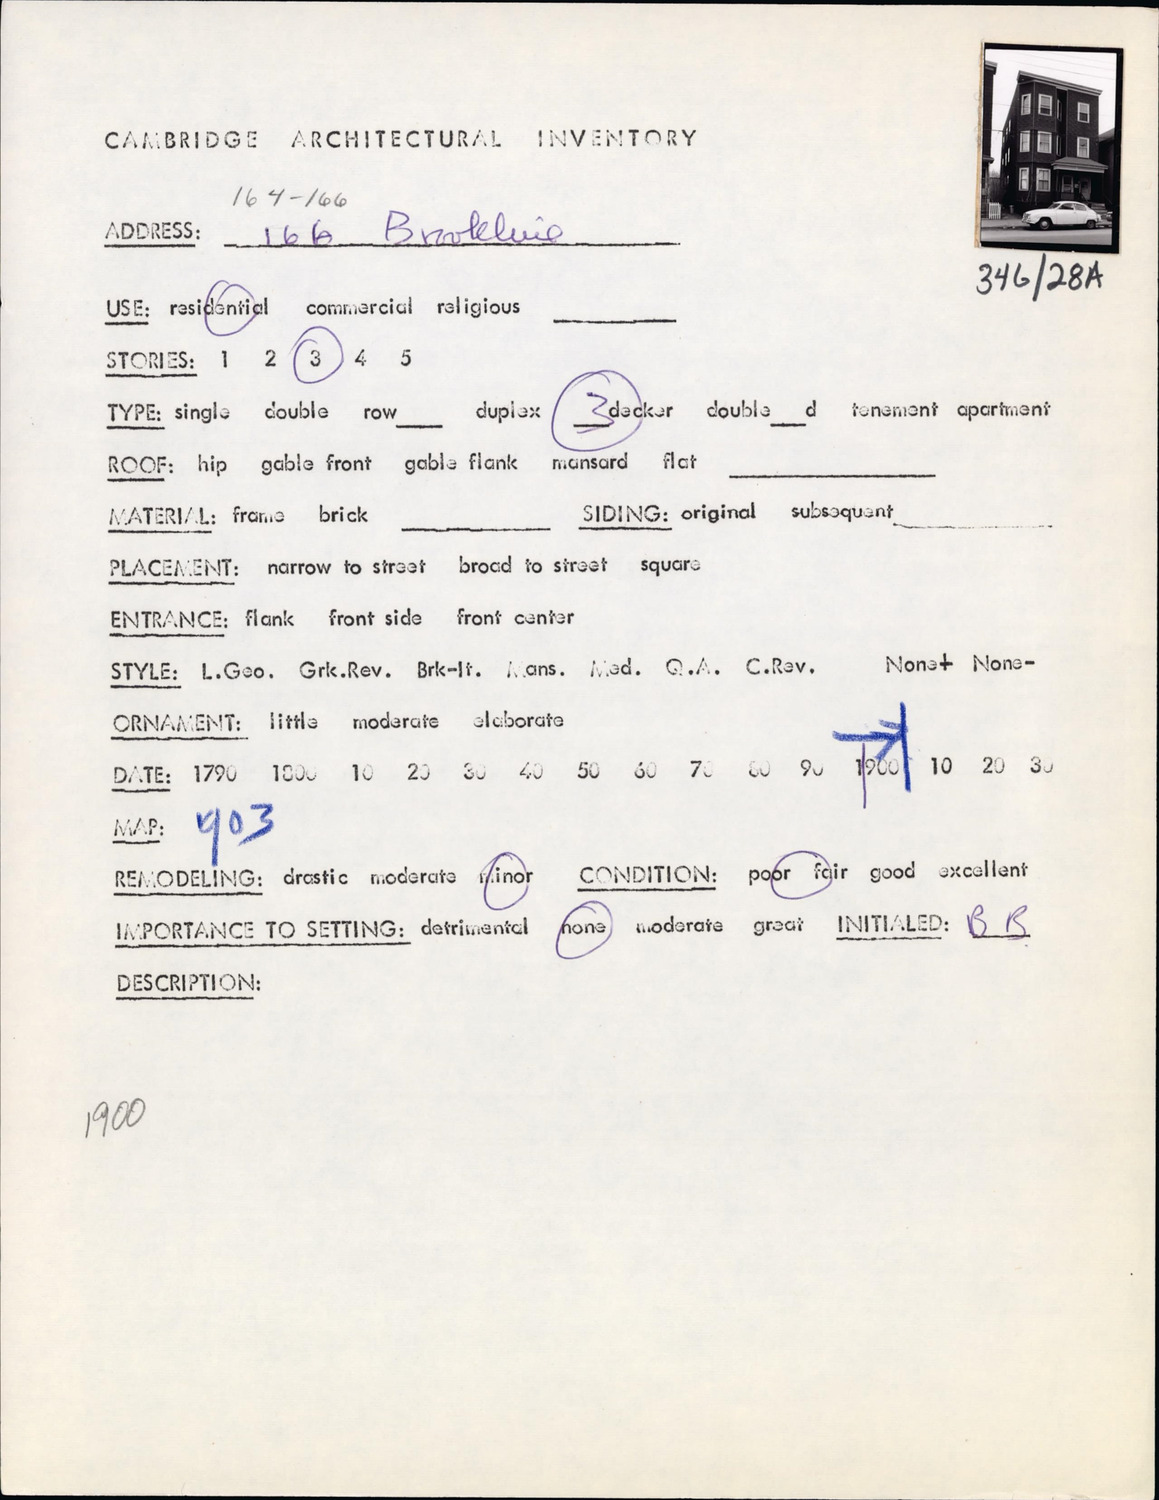 CAMBRIDGE ARCHITECTURAL INVENTORY
164-166
ADDRESS: 166 Brookline
346/28A
USE: residential commercial religious
STORIES: 1 2 3 4 5
TYPE: single double row___ duplex 3 decker double___d tenement apartment
ROOF: hip gable front gable flank mansard flat
MATERIAL: frame brick SIDING: original subsequent
PLACEMENT: narrow to street broad to street square
ENTRANCE: flank front side front center
STYLE: L.Geo. Grk.Rev. Brk-It. Mans. Med. Q.A. C.Rev. None+ None-
ORNAMENT: little moderate elaborate
DATE: 1790 1800 10 20 30 40 50 60 70 80 90 1900 10 20 30
MAP: 903
REMODELING: drastic moderate minor CONDITION: poor fair good excellent
IMPORTANCE TO SETTING: detrimental none moderate great INITIALED: BB
DESCRIPTION:
1900